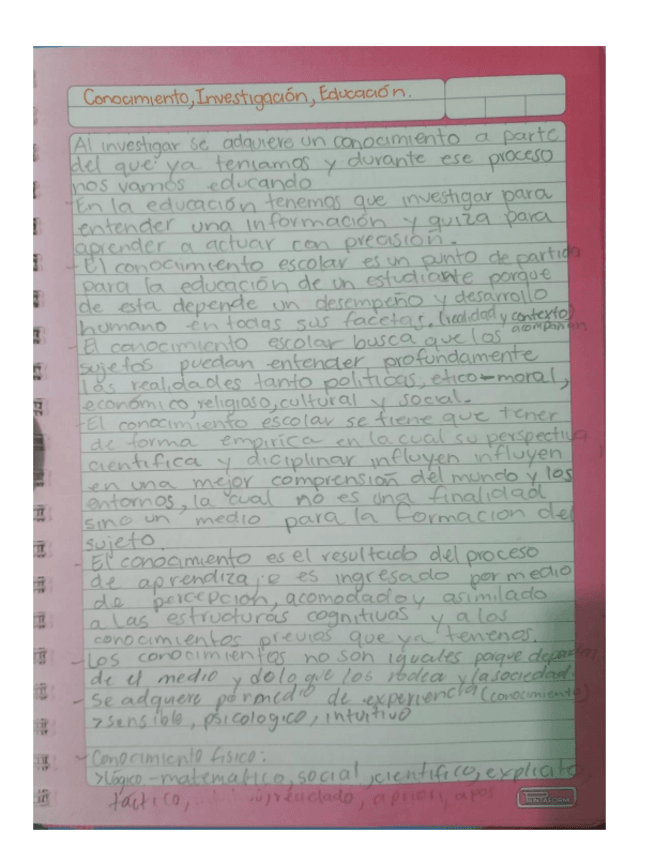 Conocimiento, Investigación, Educación.
Al investigar se adquiere un conocimiento a parte
del que ya teniamos y durante ese proceso
nos vamos educando
- En la educación tenemos que investigar para
entender una información y quiza para
aprender a actuar con precisión.
- El conocimiento escolar es un punto de partida
para la educación de un estudiante porque
de esta depende un desempeño y desarrollo
humano en todas sus facetas. (realidad y contexto)
- El conocimiento escolar busca que los acompañan
sujetos puedan entender profundamente
las realidades tanto politicas, etico-moral,
económico, religioso, cultural y social.
- El conocimiento escolar se tiene que tener
de forma empirica en la cual su perspectiva
cientifica y diciplinar influyen influyen
en una mejor comprension del mundo y los
entornos, la cual no es una finalidad
sino un medio para la formacion del
sujeto
- El conocimiento es el resultado del proceso
de aprendizaje es ingresado por medio
de percepcion, acomodado y asimilado
a las estructuras cognitivas y a los
conocimientos previos que ya tenemos.
- Los conocimientos no son iguales porque dependen
de el medio y de lo que los rodea y la sociedad.
- Se adquiere por medio de experiencia (conocimiento)
> sensible, psicologico, intuitivo
- Conocimiento fisico:
> Lógico-matematico, social, cientifico, explicito,
tactico, apriori,